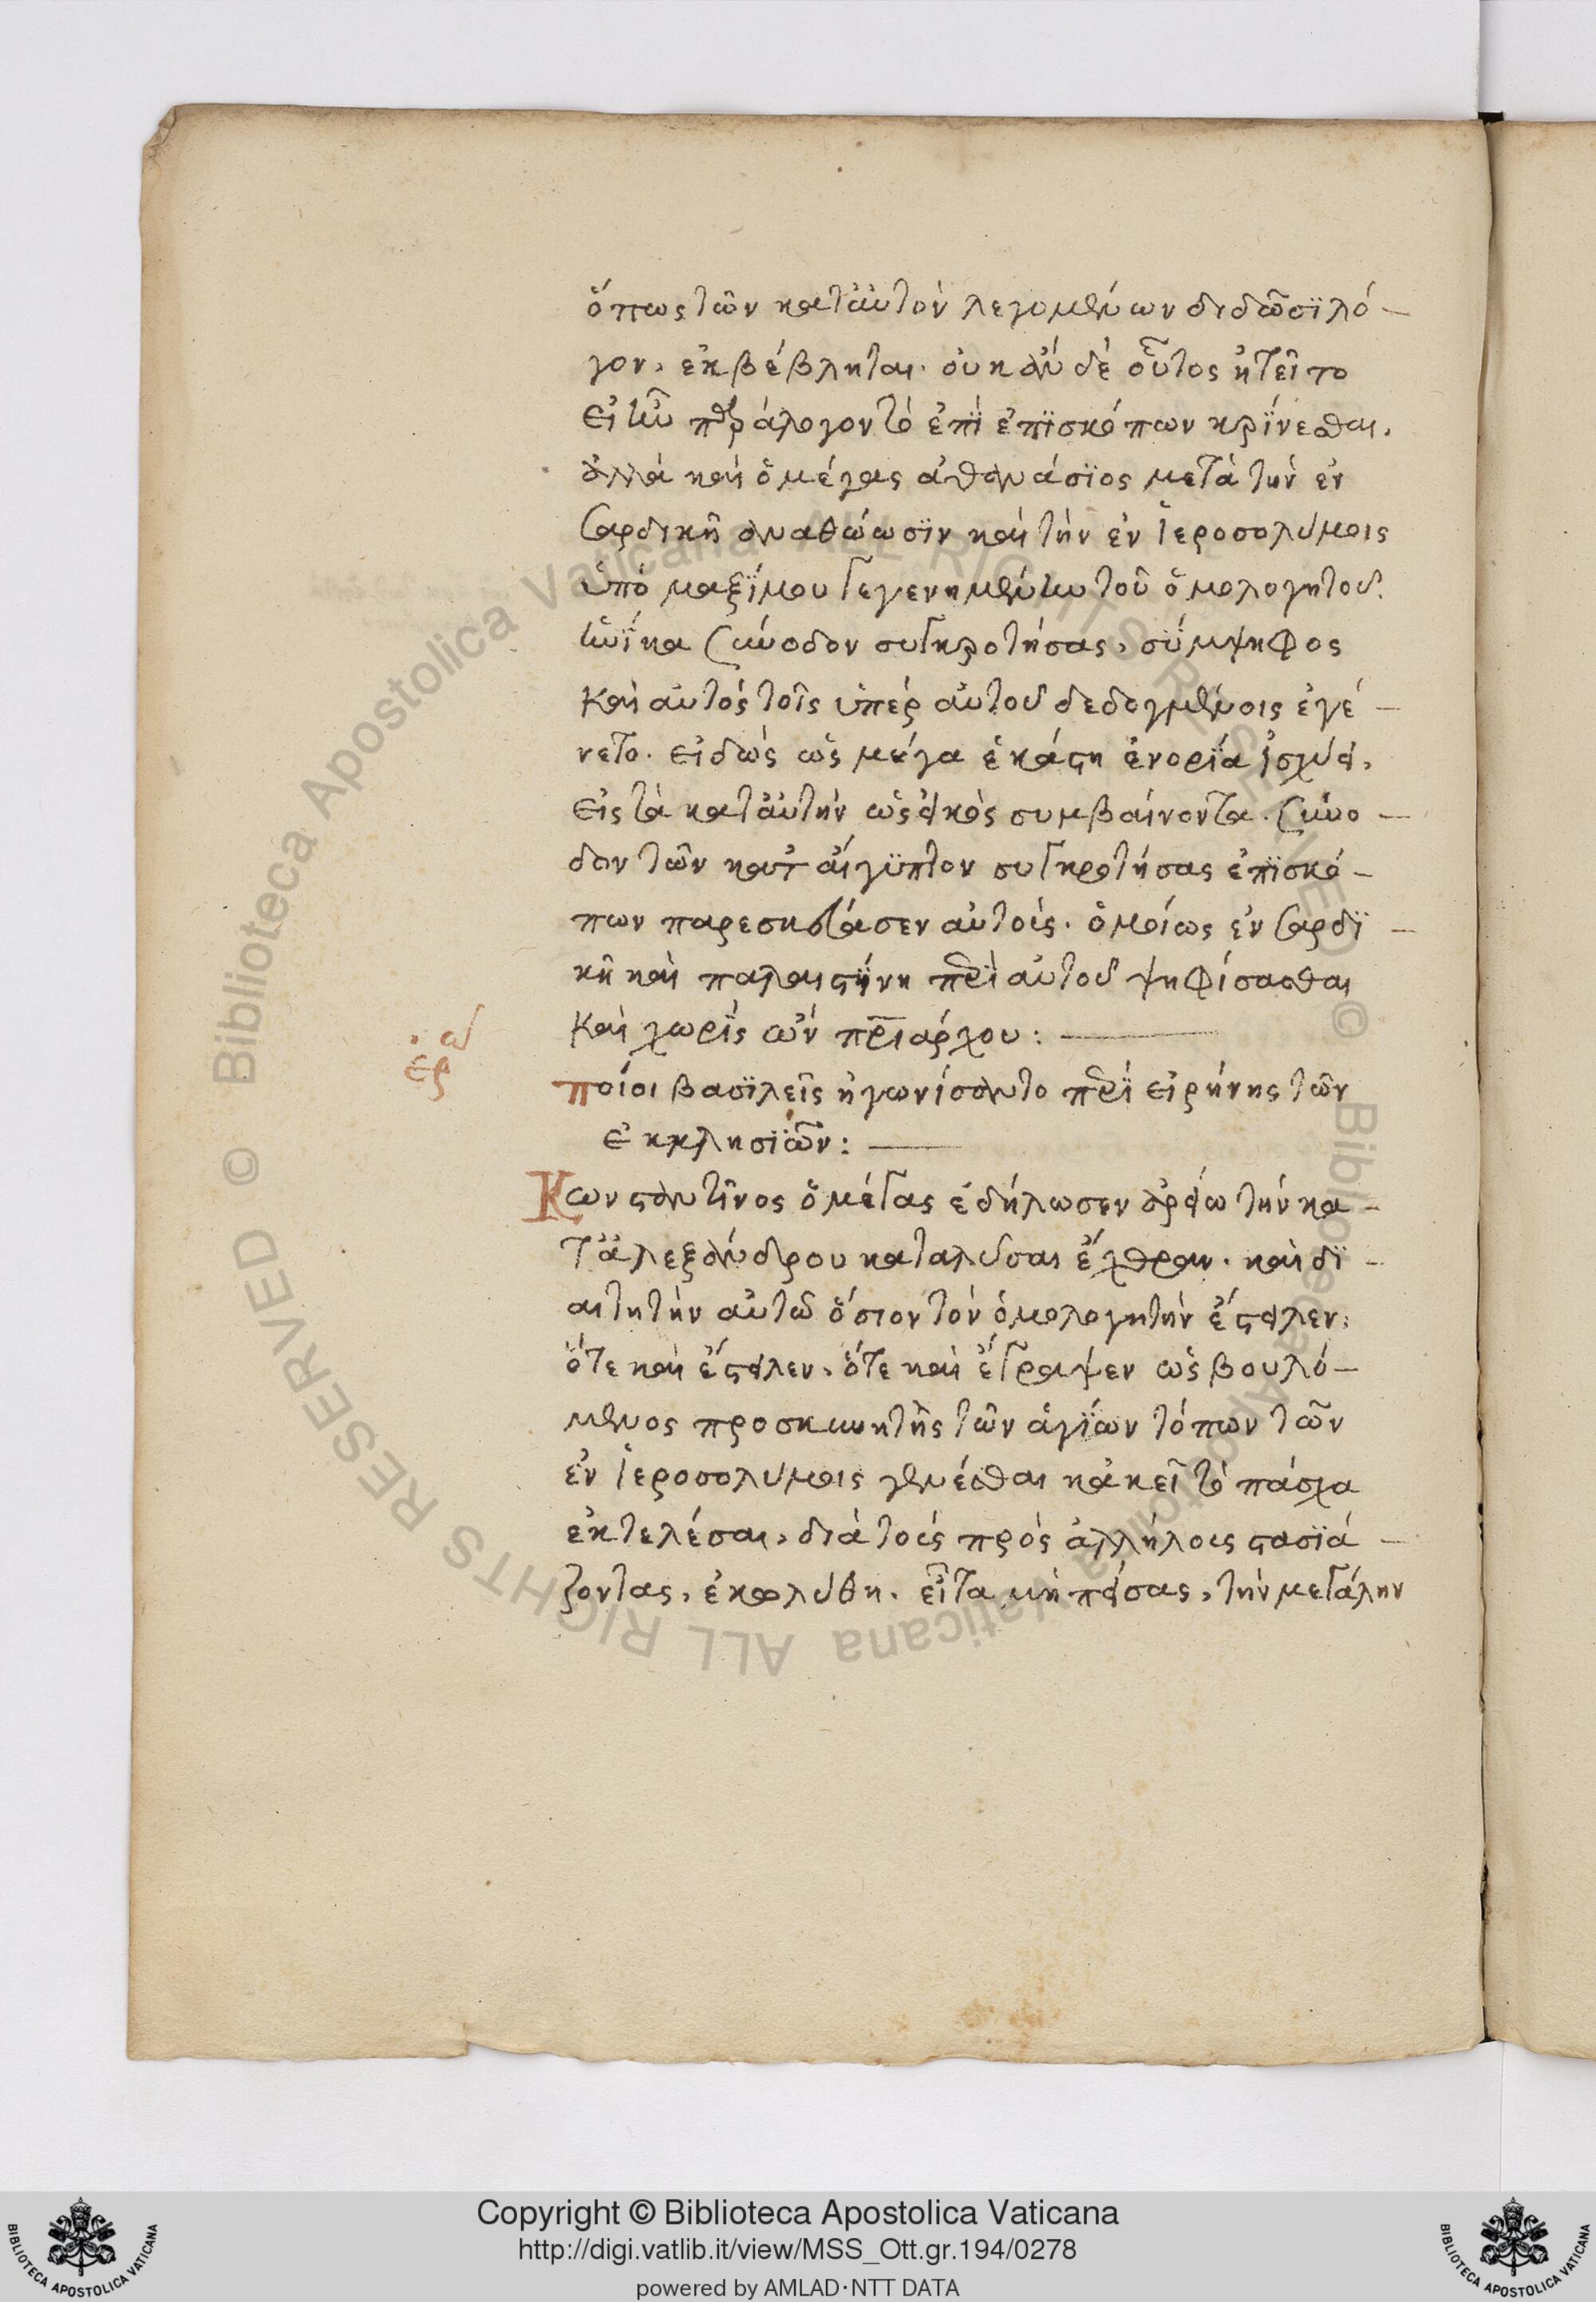 ὅπως τῶν κατ' αὐτὸν λεγομένων διδῶσϊ λό-
γον, ἐκβέβληται. οὐκ ἂν δὲ οὗτος ἠτεῖτο
εἰ ἦν παράλογον τὸ ἐπῒ ἐπϊσκόπων κρῒνεσθαι.
ἀλλὰ καὶ ὁ μέγας ἀθανάσϊος μετὰ τὴν ἐν
Σαρδικῆ ἀναθώωσϊν καὶ τὴν ἐν Ἱεροσολύμοις
ὑπὸ μαξΐμου γεγενημένην τοῦ ὁμολογητοῦ.
ἡνΐκα Σύνοδον συγκροτήσας, σύμψηφος
καὶ αὐτὸς τοῖς ὑπὲρ αὐτοῦ δεδογμένοις ἐγέ-
νετο. εἰδὼς ὡς μέγα ἑκάστη ἐνορΐα ἰσχύει,
εἰς τὰ κατ' αὐτὴν ὡς εἰκὸς συμβαίνοντα. Σύνο-
δον τῶν κατ' αἴγϋπτον συγκροτήσας ἐπϊσκό-
πων παρεσκεύασεν αὐτοὺς. ὁμοίως ἐν Σαρδϊ-
κῆ καὶ παλαιστΐνη περὶ αὐτοῦ ψηφίσασθαι
καὶ χωρῒς ὢν πριάρχου:
ερω
ποίοι βασϊλεῖς ἠγωνίσαντο περῒ εἰρήνης τῶν
ἐκκλησϊῶν:
Κωνσταντῖνος ὁ μέγας ἐδήλωσεν ἀρείω τὴν κα-
τ' ἀλεξάνδρου καταλῦσαι ἔχθραν. καὶ δϊ-
αιτητὴν αὐτῶ ὅσιον τὸν ὁμολογητὴν ἔστειλεν.
ὅτε καὶ ἔστειλεν, ὅτε καὶ ἔγραψεν ὡς βουλό-
μενος προσκυνητὴς τῶν ἁγΐων τόπων τῶν
ἐν Ἱεροσολύμοις γενέσθαι κἀκεῖ τὸ πάσχα
ἐκτελέσαι, διὰ τοὺς πρὸς ἀλλήλους στασϊά-
ζοντας, ἐκωλύθη. εἶτα μὴ πείσας, τὴν μεγάλην
Copyright © Biblioteca Apostolica Vaticana
http://digi.vatlib.it/view/MSS_Ott.gr.194/0278
powered by AMLAD·NTT DATA